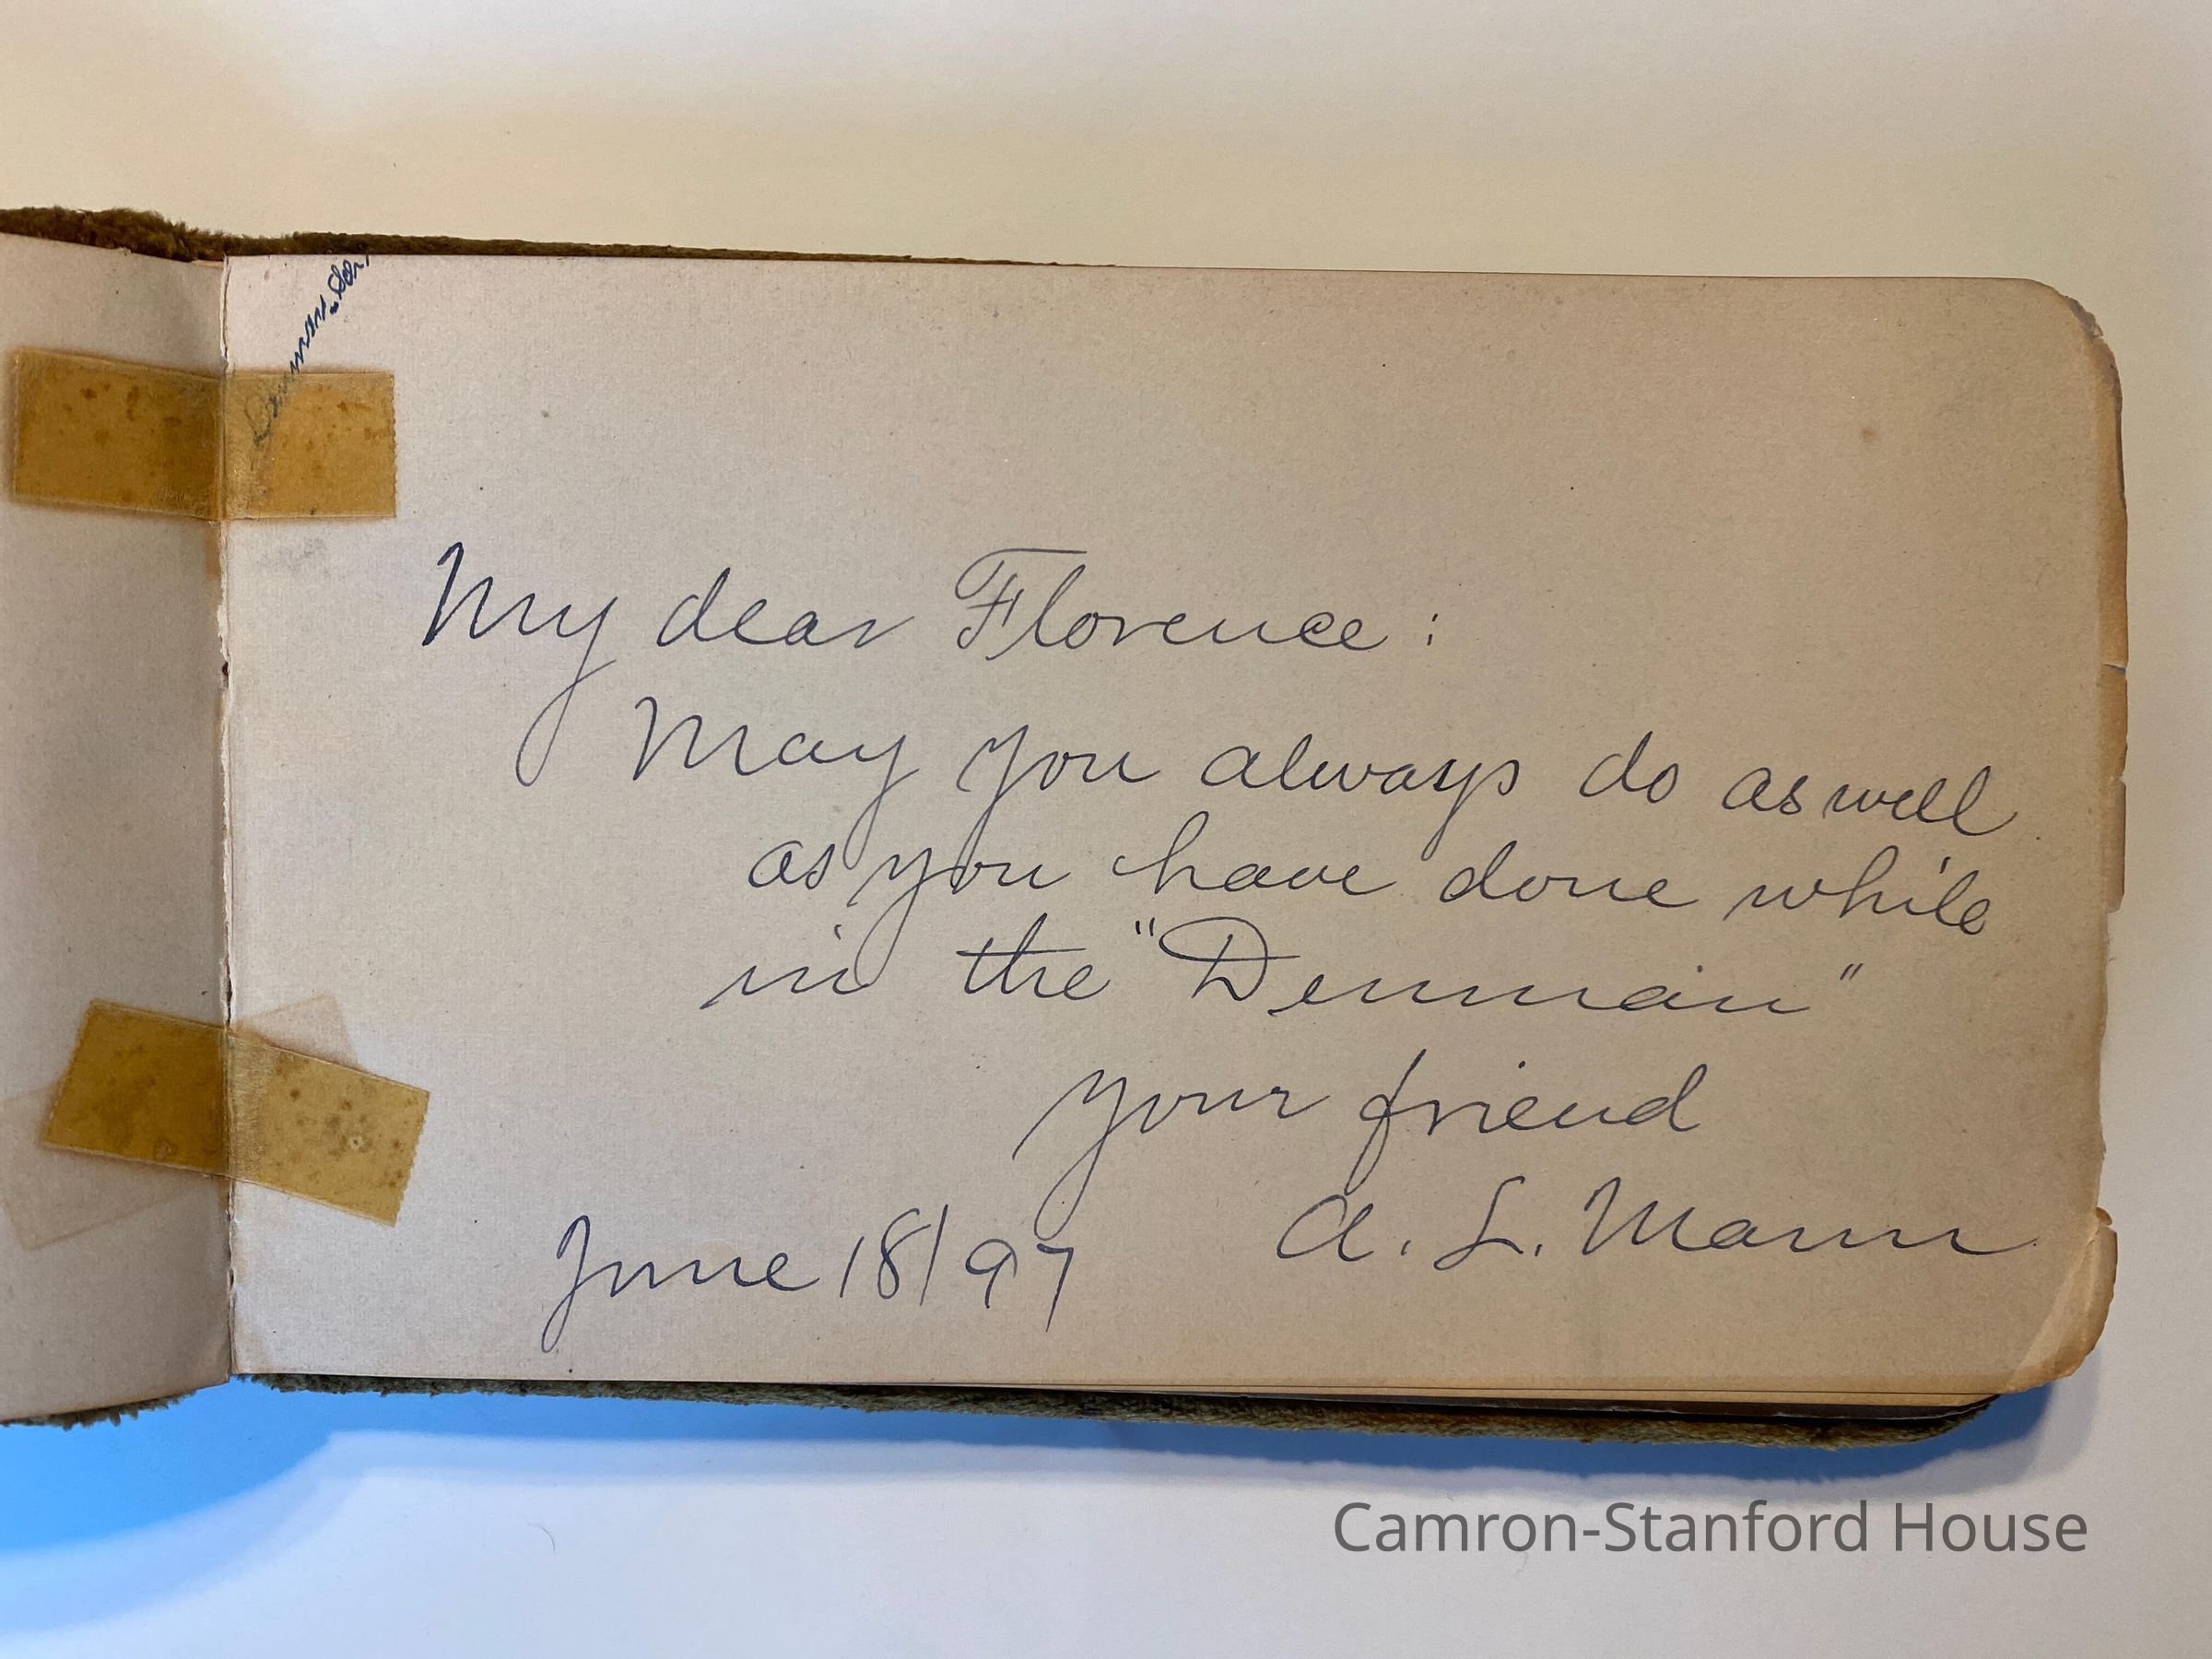 My dear Florence :
May you always do as well
as you have done while
in the "Denman"
your friend
A. L. Mann
June 18/97
Camron-Stanford House